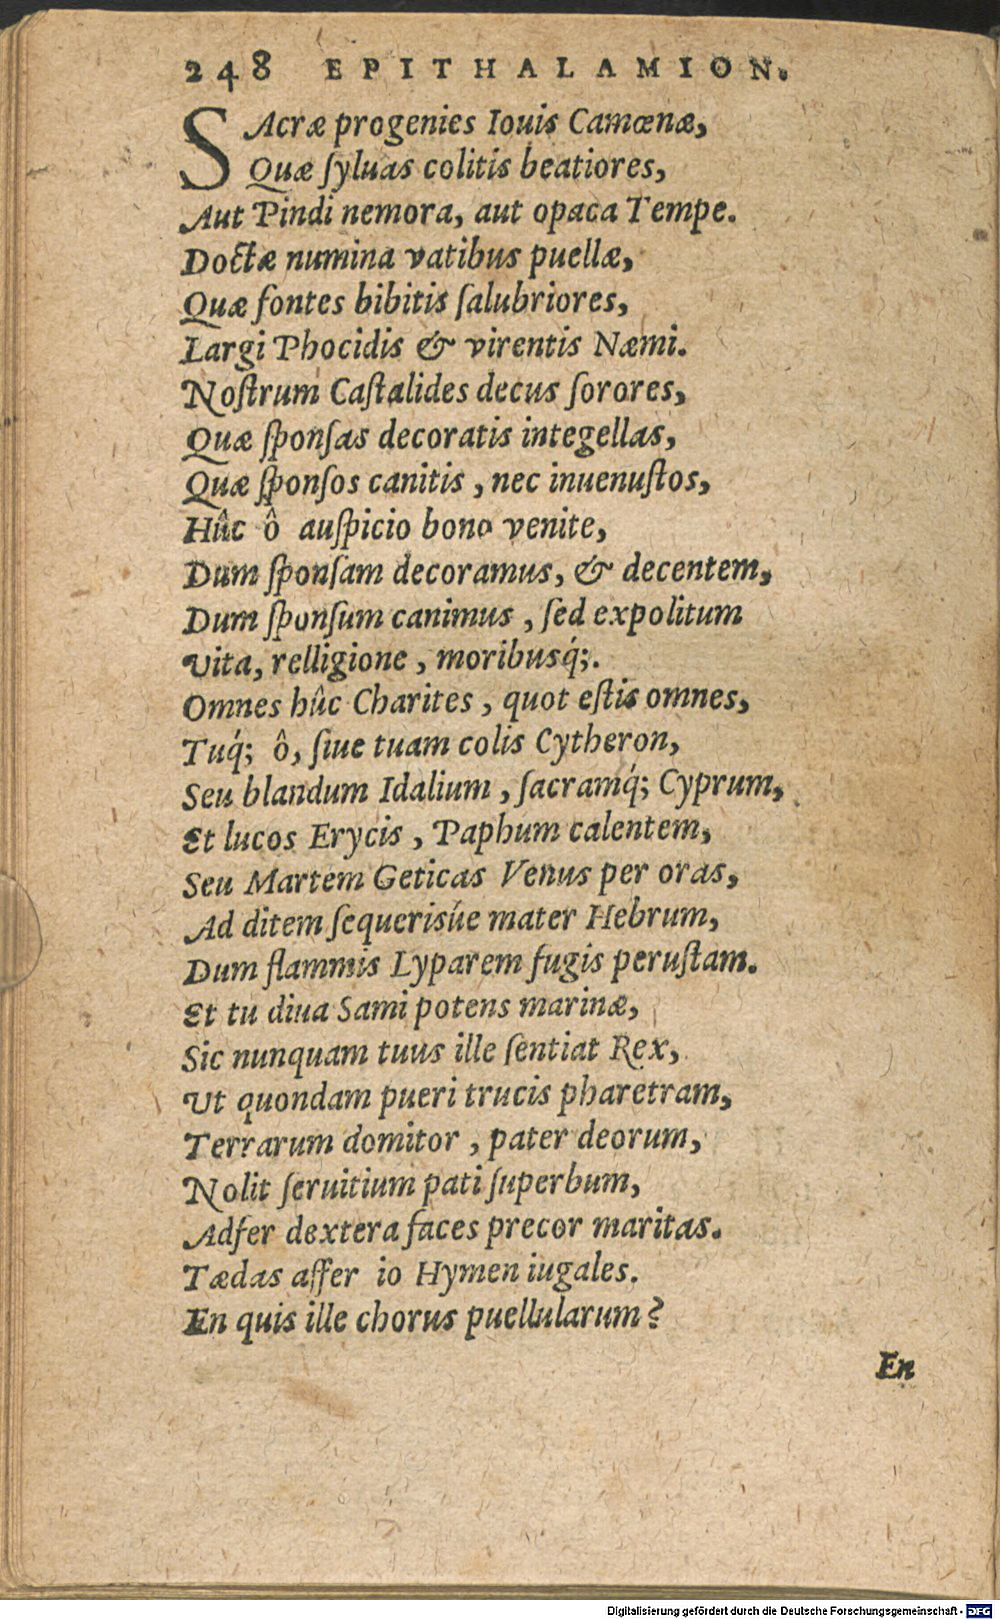 248 EPITHALAMION.
SAcræ progenies Iouis Camœnæ,
Quæ ſyluas colitis beatiores,
Aut Pindi nemora, aut opaca Tempe.
Doctæ numina vatibus puellæ,
Quæ fontes bibitis ſalubriores,
Largi Phocidis & virentis Næmi.
Noſtrum Caſtalides decus ſorores,
Quæ ſponſas decoratis integellas,
Quæ ſponſos canitis, nec inuenuſtos,
Hûc ô auſpicio bono venite,
Dum ſponſam decoramus, & decentem,
Dum ſponſum canimus, ſed expolitum
Vita, relligione, moribusq́;.
Omnes hûc Charites, quot eſtis omnes,
Tuq́; ô, ſiue tuam colis Cytheron,
Seu blandum Idalium, ſacramq́; Cyprum,
Et lucos Erycis, Paphum calentem,
Seu Martem Geticas Venus per oras,
Ad ditem ſequerisúe mater Hebrum,
Dum flammis Lyparem fugis peruſtam.
Et tu diua Sami potens marinæ,
Sic nunquam tuus ille ſentiat Rex,
Ut quondam pueri trucis pharetram,
Terrarum domitor, pater deorum,
Nolit ſeruitium pati ſuperbum,
Adfer dextera faces precor maritas.
Tædas affer io Hymen iugales.
En quis ille chorus puellularum?
En
Digitalisierung gefördert durch die Deutsche Forschungsgemeinschaft - DFG